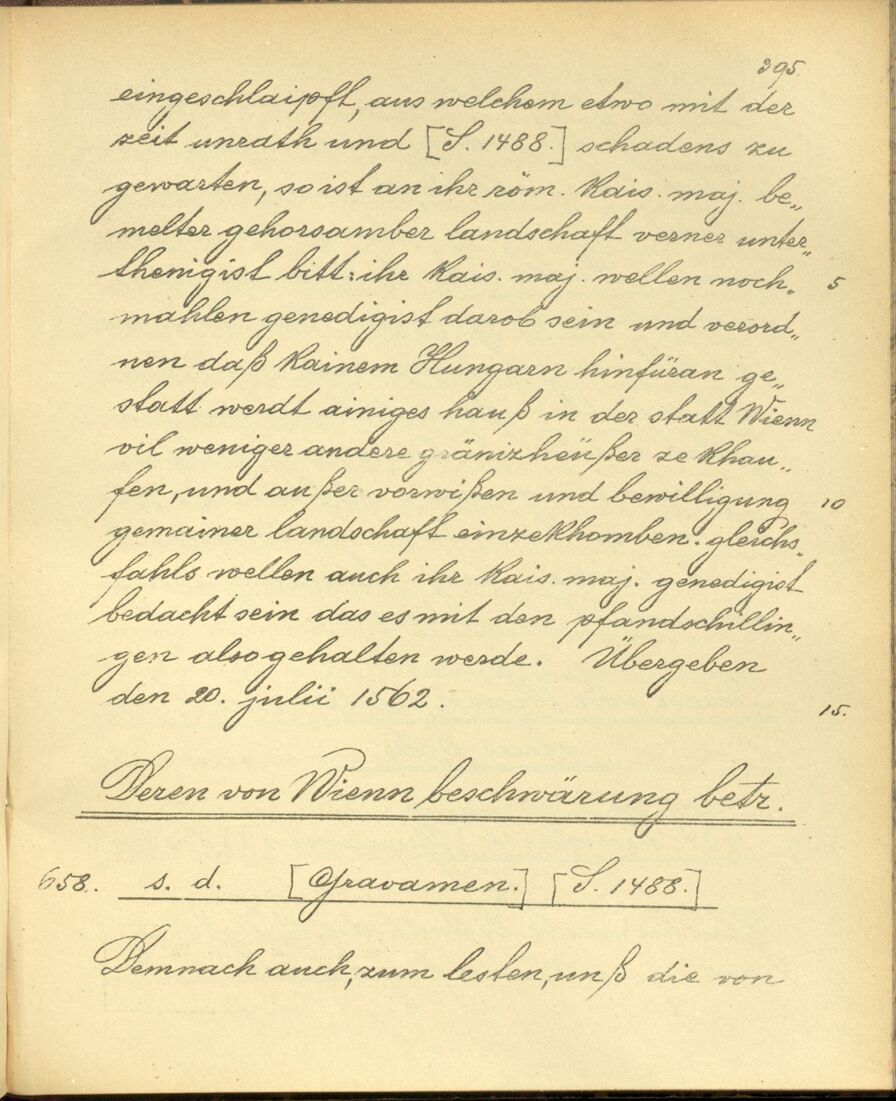 395.
eingeschlaipft, aus welchem etwo mit der
zeit unrath und [S. 1488.] schadens zu
gewarten, so ist an ihr röm. kais. maj. be„
melter gehorsamber landschaft verner unter„
thenigist bitt: ihr kais. maj. wellen noch„ 5
mahlen genedigist darob sein und verord„
nen daß kainem Hungarn hinfüran ge„
statt werdt ainiges hauß in der statt Wienn
vil weniger andere gränizheüßer ze khau„
fen, und außer vorwißen und bewilligung 10
gemainer landschaft einzekhomben. gleichs„
fahls wellen auch ihr kais. maj. genedigist
bedacht sein das es mit den pfandschillin„
gen also gehalten werde. Übergeben
den 20. julii 1562. 15.
Deren von Wienn beschwärung betr.
658. s. d. [Gravamen.] [S. 1488.]
Demnach auch, zum lesten, unß die von